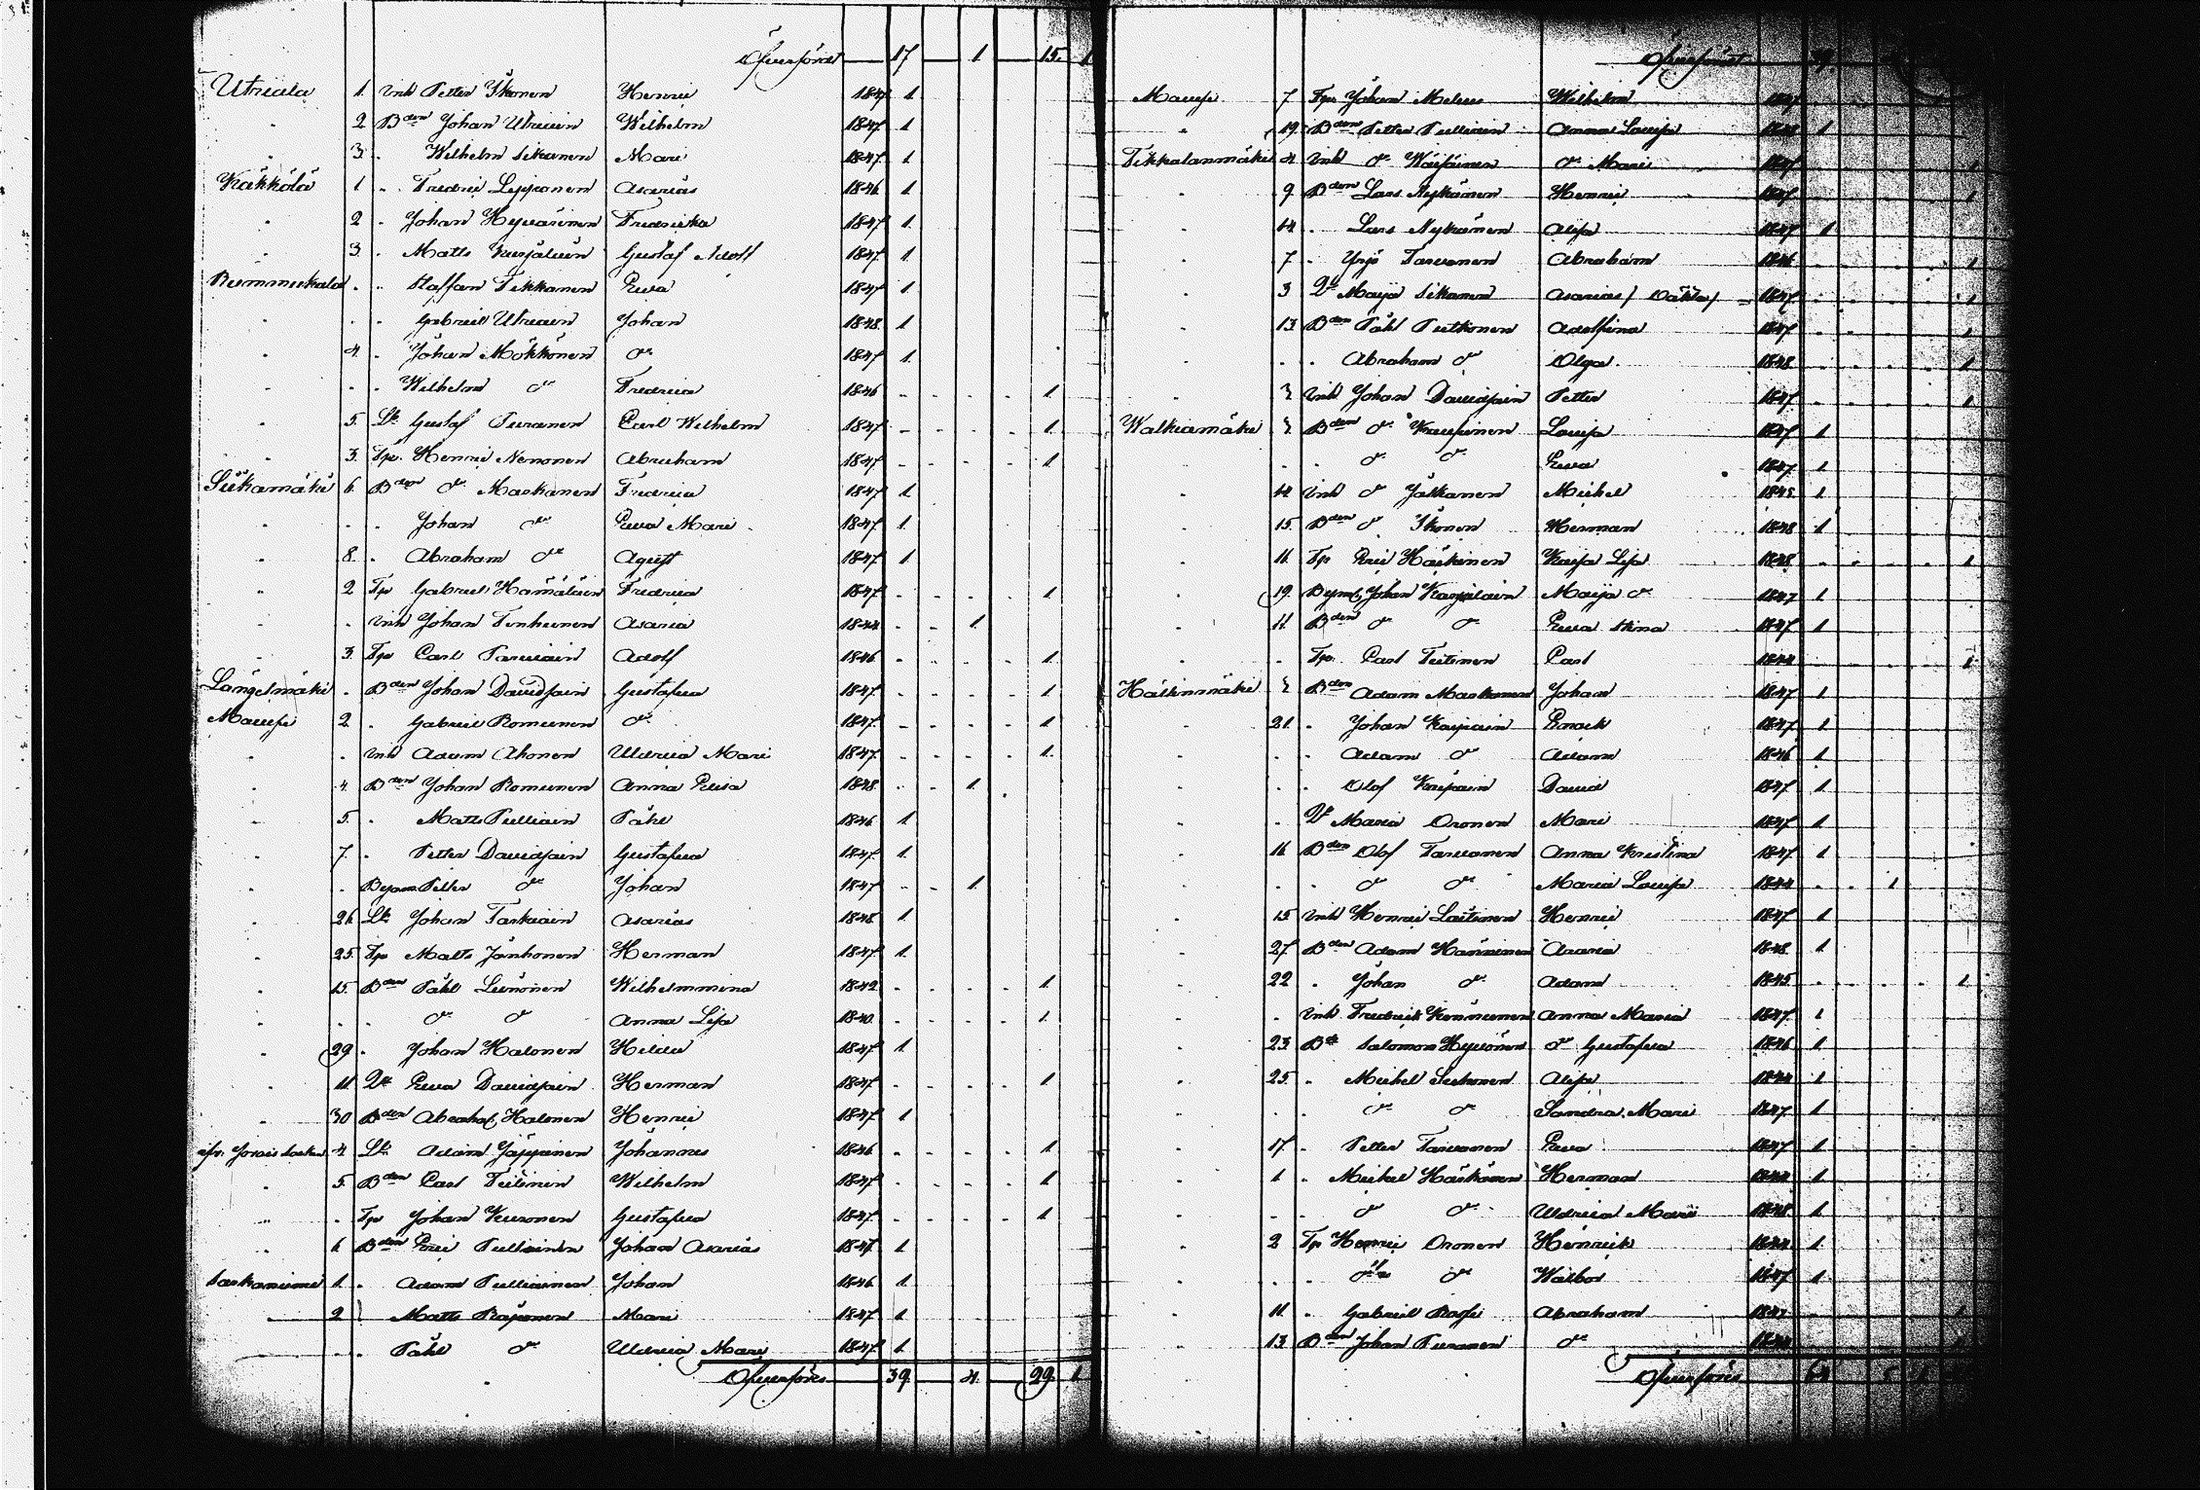 Öfverföres 17 1 15. 1
Utriala 1. Inh Petter Ikonen Henric 1847 1
" 2 Bden Johan Utriain Wilhelm 1847 1
" 3. " Wilhelm Sikanen Mari 1847 1
Käkkölä 1 " Fredric Lipponen Asarias 1846 1
" 2 " Johan Hyvärinen Fredricka 1847 1.
" 3. " Matts Karjalain Gustaf Adolf 1847 1
Rummukala . " Staffan Tikkanen Eva 1847 1.
" . . Gabriel Utriain Johan 1848 1
" 4. " Johan Mökkönen do 1847 1.
" . . Wilhelm do Fredrica 1846 . . . . 1
" 5. Lk Gustaf Puranen Carl Wilhelm 1847 . . . . 1.
" 3. Tps. Henric Nenonen Abraham 1847 . . . . 1
Siikamäki 6. Bden do Markanen Fredrica 1847 1.
" . . Johan do Eva Mari 1847 1.
" 8. . Abraham do Agust 1847 1.
" 2 Tps Gabriel Hämäläin Fredrica 1847 . . . . 1
" . Inh Johan Tenhunen Asaria 1844 . . 1
" 3. Tps Carl Parviain Adolf 1846 . . . . 1
Längelmäki . Bden Johan Davidsain Gustafva 1847 . . . . 1
Maurja 2. . Gabriel Romunen do 1847 . . . . 1
" . Inh Adam Ahonen Uldrica Mari 1847 . . . . 1.
" 4. Bden Johan Romunen Anna Elisa 1848 . . 1.
" 5. . Matts Pulliain Påhl 1846 1
" 7. . Petter Davidsain Gustafva 1847 1.
" . Petter do Johan 1847 . . 1
" 26 Lk Johan Tarkiain Asarias 1848 1
" 25. Tps Matts Jänhonen Herman 1847 1.
" 15. Bden Påhl Leinonen Wilhelmmina 1842 . . . . 1
" . . do do Anna Lisa 1840 . . . . 1.
" 29. . Johan Halonen Hilda 1847 1.
" 11 Eva Davidsain Herman 1847 . . . . 1
" 30 Bden Abraha Halonen Henric 1847 1
4. Lk Adam Jäppinen Johannes 1846 . . . . 1
" 5. Bden Carl Teitinen Wilhelm 1847 . . . . 1
" . Tps Johan Kuronen Gustafva 1847 . . . . 1
" 6 Bden Eric Pulliainen Johan Asarias 1847 1
Sarkaniemi 1. . Adam Pulliainen Johan 1846 1.
" 2 Matts Räsönen Mari 1847 1
. . Påhl do Uldrica Mari 1847 1
Öfverföres 39. 4. 29. 1
Öfverföres
Maurja 7 Tps Johan Wilhelm 1847
" 19. Bden Petter Pulliain Anna Lovisa 1848 1
Tikkalanmäki 4 Inh do Väisänen do Mari 1847 1
" 9 Bden Lars Nykänen Henric 1847 1
" 14 . Lars Nykänen Alisa 1847 1
" 7 . Yrjö Tarvanen Abraham 1846 1
" 3 Maija Sikanen Asarias 1847 1
" 13 Bden Påhl Putkonen Adolfina 1847 1
" . . Abraham do Olga 1848 1
" 3 Inh Johan Davidsain Petter 1847 1
Walkiamäki Bden do Lovisa 1847 1
" . . do do Eva 1847 1
" 14 Inh do Jalkanen Mickel 1845 1
" 15. Bden do Ikonen Herman 1848 1
" 11. Tps Eric Häikinen Kaisa Lisa 1848 1
" 19 Johan Karjalain Maija do 1847 1
" 11. Bden do do Eva Stina 1847 1
" . Tps Carl Teitinen Carl 1844 1
Hällinmäki Bden Adam Markanen Johan 1847 1
" 21. . Johan Enock 1847 1
" . . Adam do Adam 1846 1
" . . Olof David 1847 1
" . Maria Oronen Mari 1847 1
" 16 Bden Olof Tarvanen Anna Kristina 1847 1
" . . do do Maria Lovisa 1844 . . 1
" 15 Inh Henric Laitinen Henric 1847 1
" 27. Bden Adam Hänninen Asaria 1848 1
" 22 . Johan do Adam 1845 1
" . Inh Fredrick Anna Maria 1847 1
" 23 Salomon Hyvönen do Gustafva 1846 1
" 25. . Mickel Alisa 1844 1
" . . do do Sandra Mari 1847 1
" 17 . Petter Tarvanen Eva 1847 1
" 1 . Mickel Häikönen Herman 1844 1
" . . do do Uldrica Mari 1848 1
" 2 Tps Henric Oronen Henrick 1844 1
" . . do do Walbor 1847 1
" 11 . Gabriel Abraham 1847 1
" 13 Bden Johan Puranen do 1844 1
Öfverföres